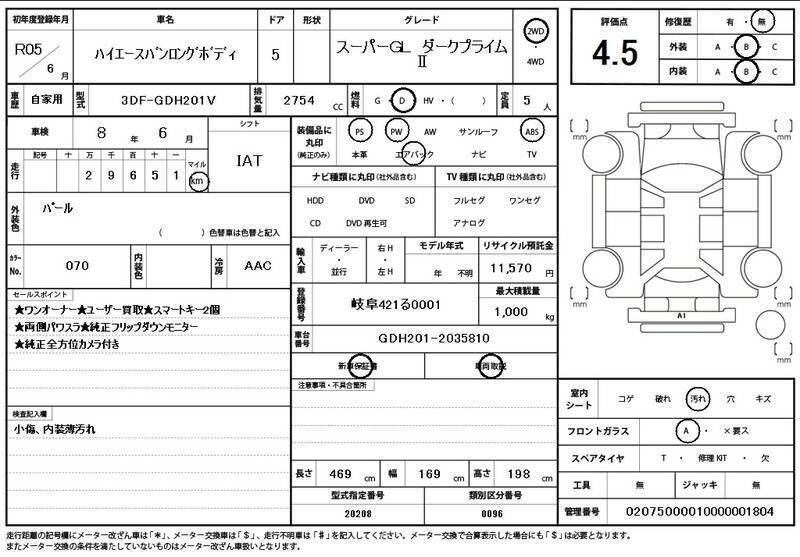 初年度登録年月 車名 ドア 形状 グレード
R05 / 6 月 ハイエースバンロングボディ 5 スーパーGL ダークプライム Ⅱ 2WD ・ 4WD
車歴 自家用 型式 3DF-GDH201V 排気量 2754 CC 燃料 G ・ D ・ HV ・( ) 定員 5 人
車検 8 年 6 月 シフト IAT
走行 記号 十 万 千 百 十 一 マイル km
2 9 6 5 1
外装色 パール
( )色替車は色替と記入
カラーNo. 070 内装色 冷房 AAC
セールスポイント
★ワンオーナー★ユーザー買取★スマートキー2個
★両側パワスラ★純正フリップダウンモニター
★純正全方位カメラ付き
検査記入欄
小傷、内装薄汚れ
装備品に丸印 (純正のみ) PS PW AW サンルーフ ABS
本革 エアバック ナビ TV
ナビ種類に丸印(社外品含む) TV種類に丸印(社外品含む)
HDD DVD SD フルセグ ワンセグ
CD DVD再生可 アナログ
輸入車 ディーラー ・ 並行 右H ・ 左H モデル年式 年 不明 リサイクル預託金 11,570 円
登録番号 岐阜421る0001 最大積載量 1,000 kg
車台番号 GDH201-2035810
新車保証書 車両取説
注意事項・不具合箇所
長さ 469 cm 幅 169 cm 高さ 198 cm
型式指定番号 類別区分番号
20208 0096
評価点 4.5
修復歴 有 ・ 無
外装 A ・ B ・ C
内装 A ・ B ・ C
[ ] mm
[ ] mm
[ ] mm
[ ] mm
[ ] mm
A1
室内シート コゲ 破れ 汚れ 穴 キズ
フロントガラス A ・ ×要ス
スペアタイヤ T ・ 修理KIT ・ 欠
工具 無 ジャッキ 無
管理番号 02075000010000001804
走行距離の記号欄にメーター改ざん車は「*」、メーター交換車は「$」、走行不明車は「#」を記入してください。メーター交換で合算表示した場合にも「$」は必要となります。
またメーター交換の条件を満たしていないものはメーター改ざん車扱いとなります。